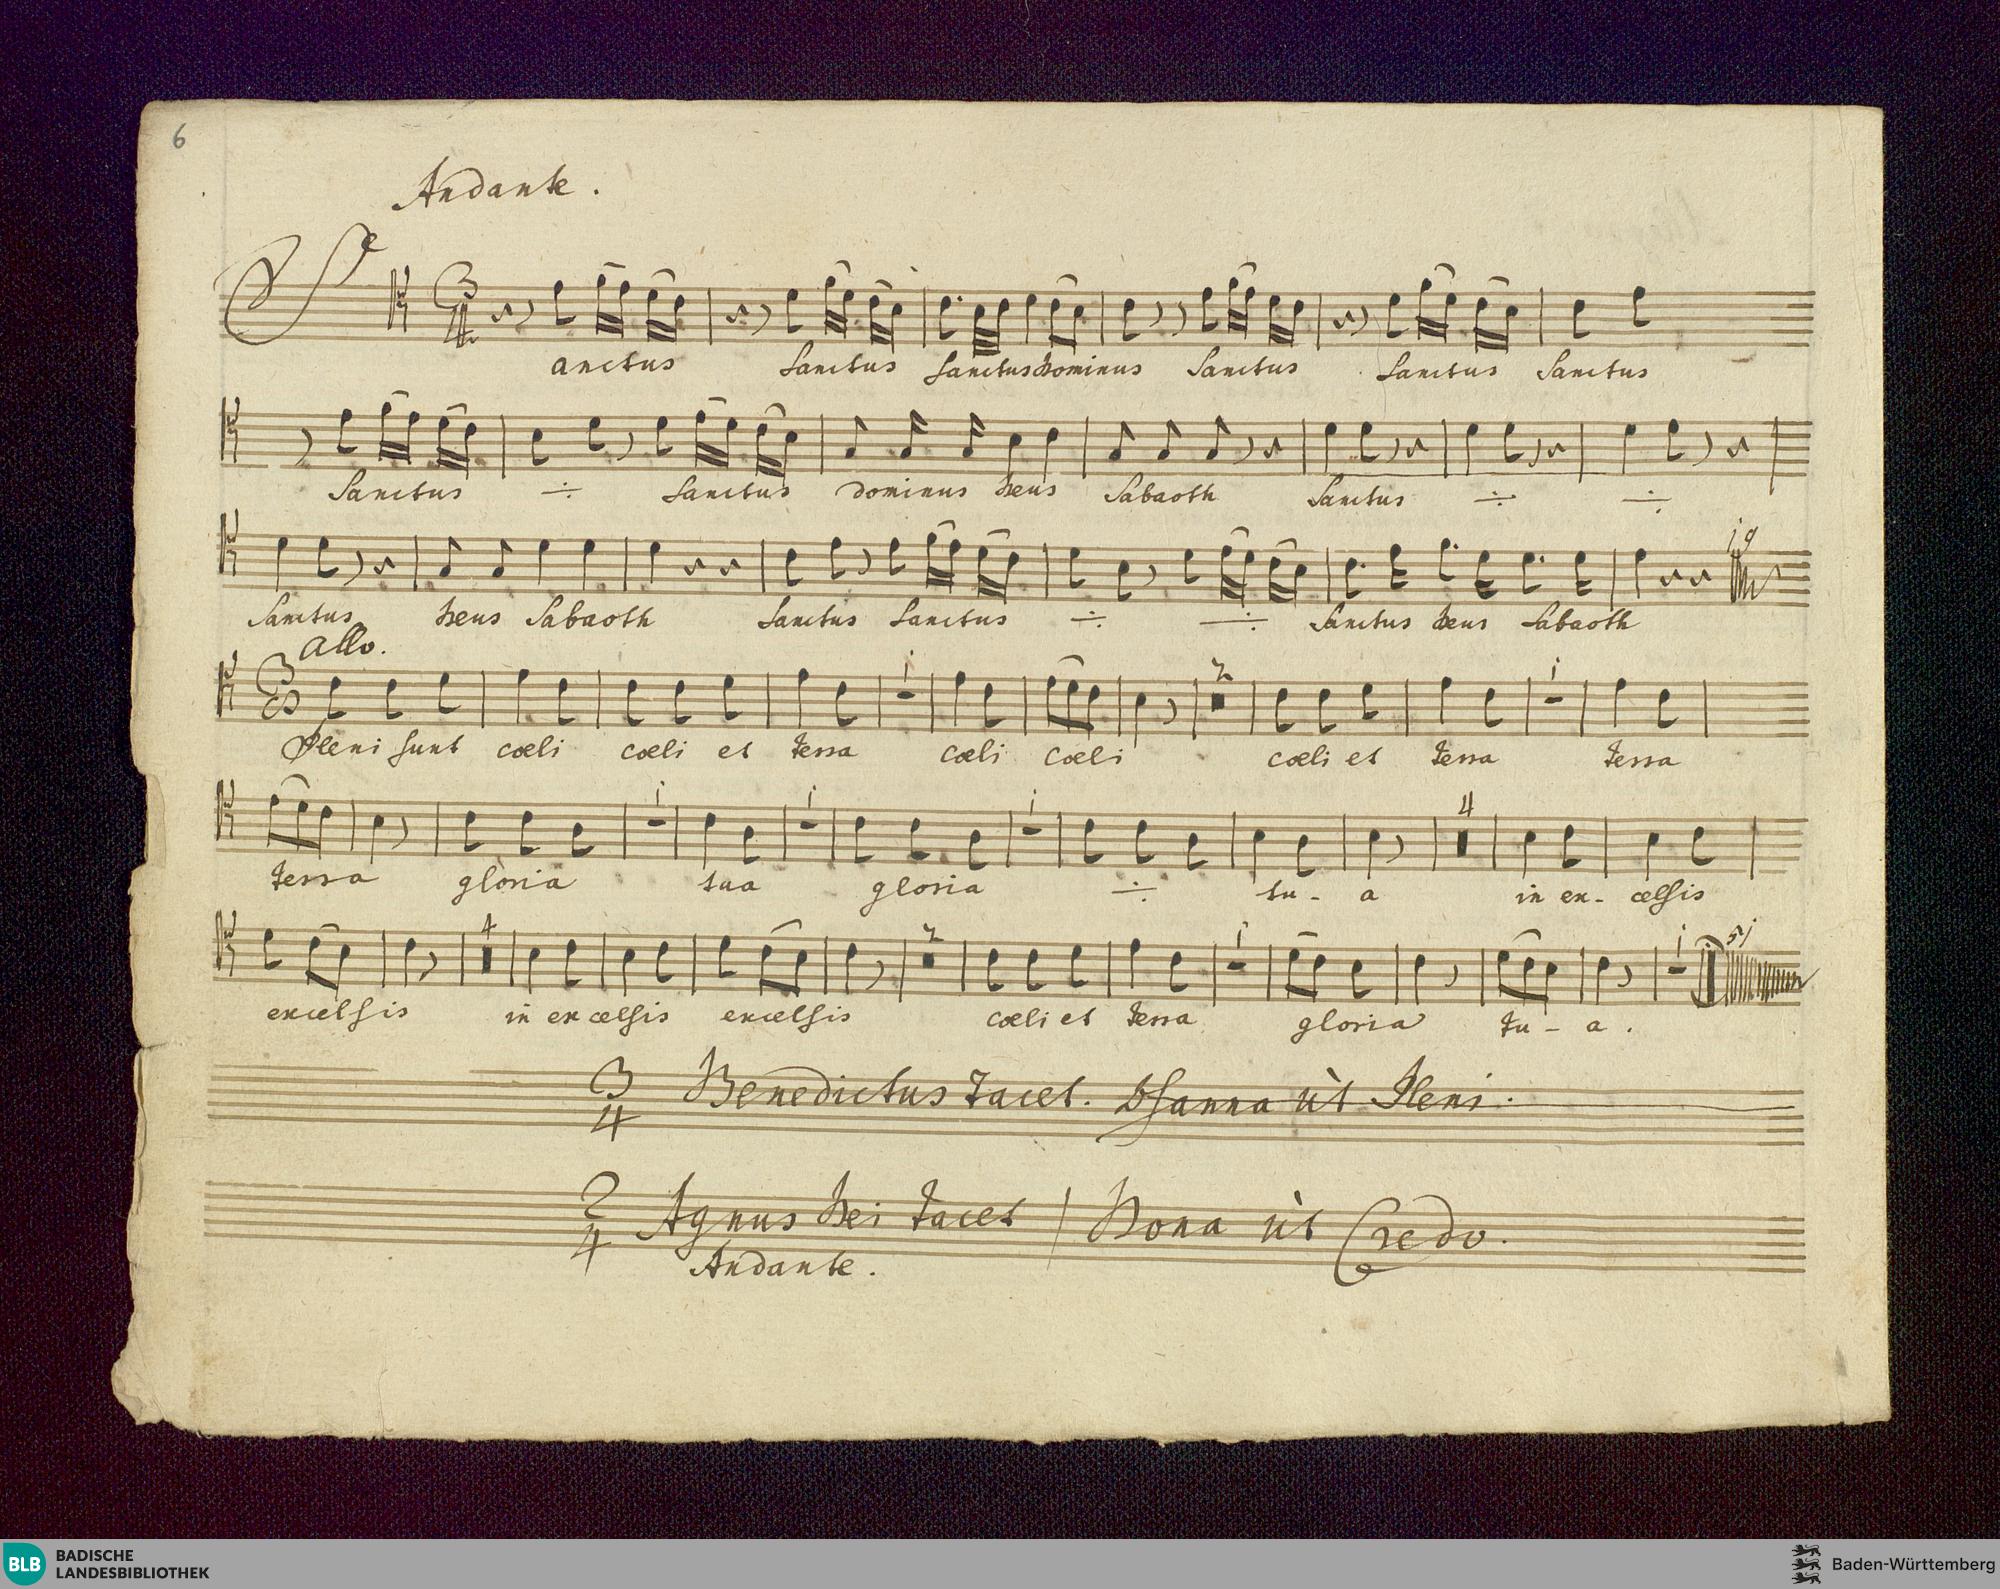 6
Andante.
3/4
Sanctus Sanctus Sanctus Dominus Sanctus Sanctus Sanctus
Sanctus ÷ Sanctus dominus Deus Sabaoth Sanctus ÷ ÷
19
Sanctus Deus Sabaoth Sanctus Sanctus ÷ ÷ Sanctus Deus Sabaoth
allo.
3/8 1 2 1
Pleni sunt cœli cœli et terra cœli cœli cœli et terra terra
1 1 1 4
terra gloria tua gloria ÷ tu- a in ex- celsis
4 2 1 1 51
excelsis in ex celsis excelsis cœli et terra gloria tu- a.
3/4 Benedictus tacet. Osanna ùt Pleni.
2/4 Agnus Dei tacet / Dona ùt Credo.
Andante.
BLB BADISCHE LANDESBIBLIOTHEK
Baden-Württemberg